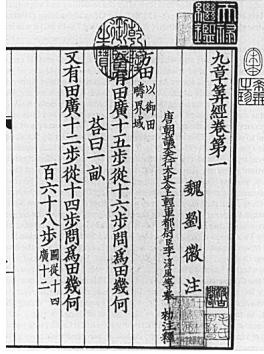 九章筭經卷第一
魏劉徽注
唐朝議大夫行太史令上輕車都尉臣李淳風等奉 敕注釋
方田 以御田
疇界域
今有田廣十五步從十六步問為田幾何
荅曰一畝
又有田廣十二步從十四步問為田幾何
百六十八步 圖從十四
廣十二
天祿繼鑑
乾隆御覽之寶